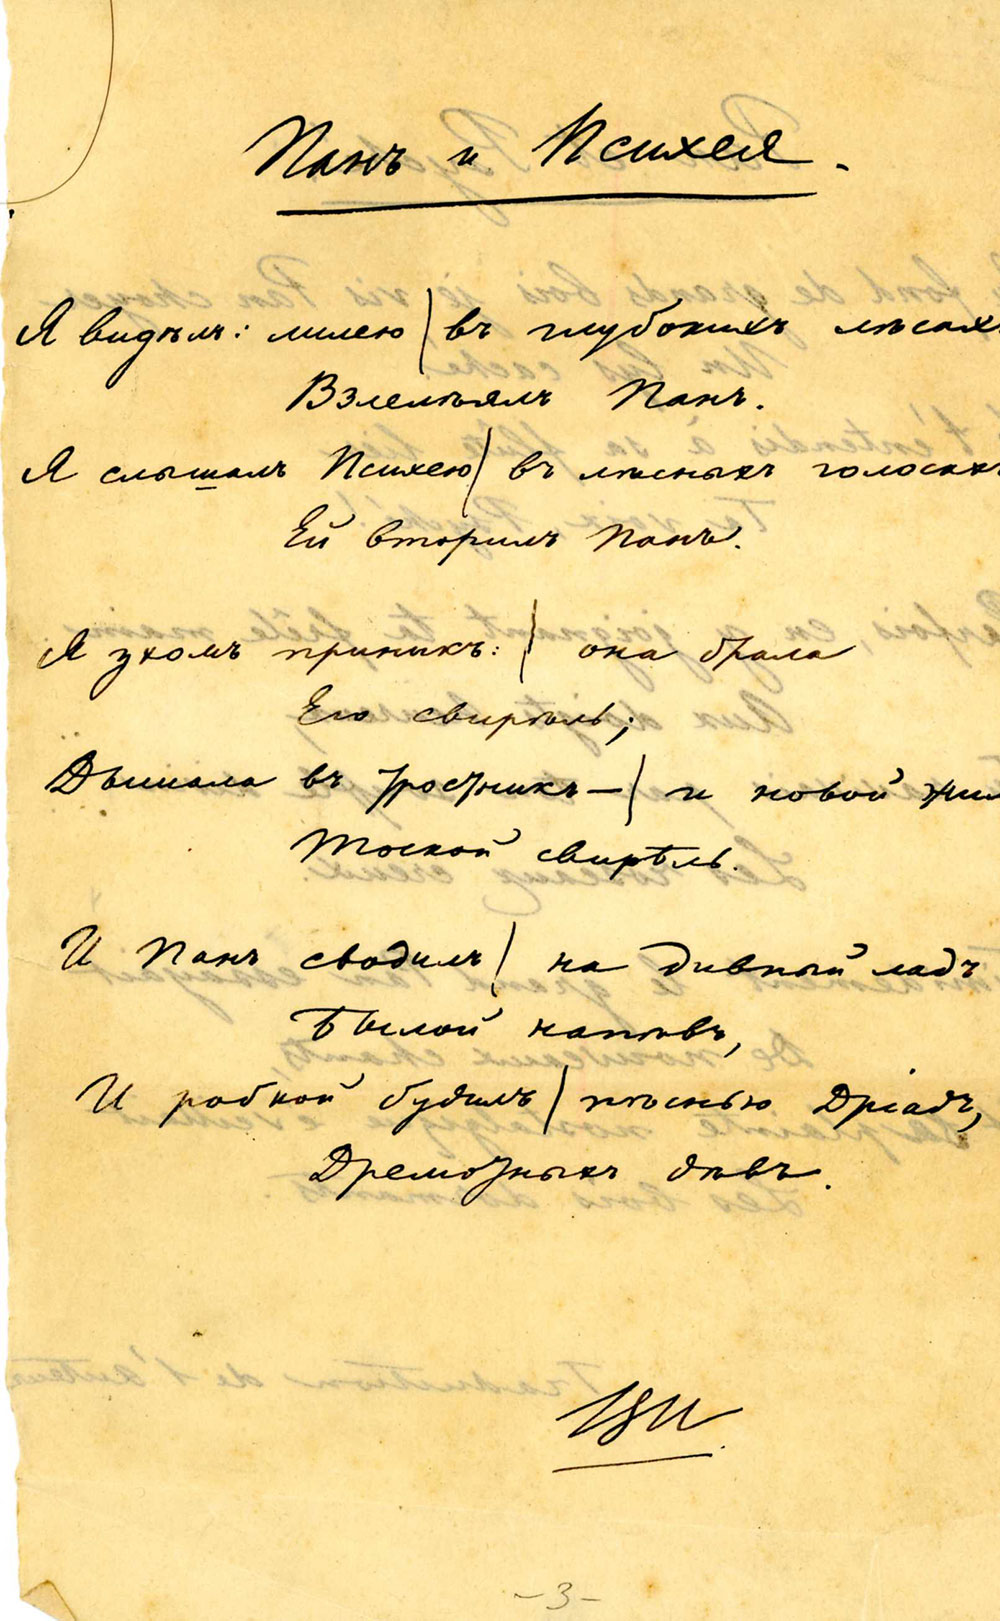 Панъ и Психея.
Я видѣлъ: лилею / въ глубокихъ лѣсахъ
Взлелѣялъ Панъ.
Я слышалъ Психею / въ лѣсныхъ голосахъ
Ей вторилъ Панъ.
Я ухомъ приникъ: / она брала
Его свирѣль;
Дышала въ тростникъ — / и новой жила
Тоской свирѣль.
И Панъ сводилъ / на дивный ладъ
Былой напѣвъ,
И робкой будилъ / пѣснью Дріадъ,
Дремотныхъ дѣвъ.
ВИ.
-3-